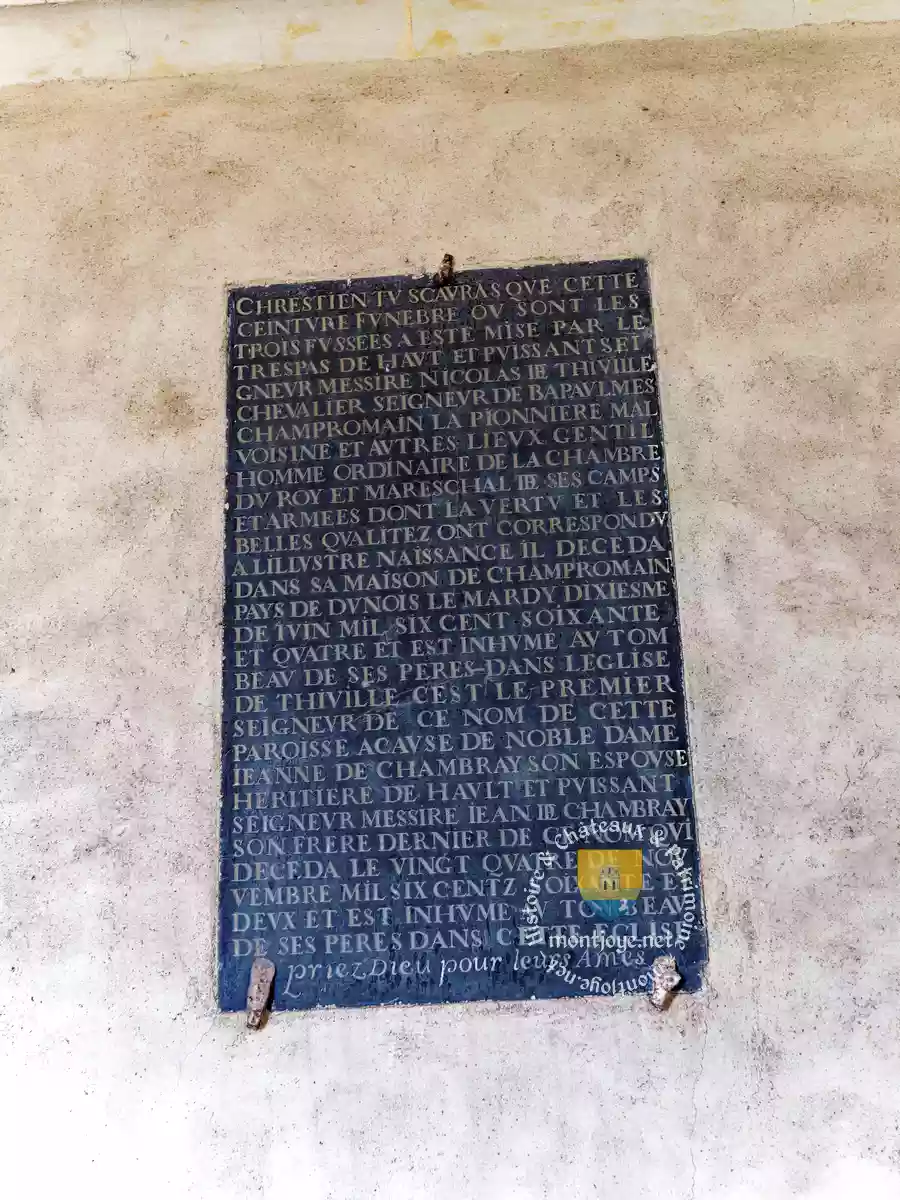 CHRESTIEN TV SCAVRAS QVE CETTE
CEINTVRE FVNEBRE OV SONT LES
TROIS FVSSEES A ESTE MISE PAR LE
TRESPAS DE HAVT ET PVISSANT SEI
GNEVR MESSIRE NICOLAS DE THIVILLE
CHEVALIER SEIGNEVR DE BAPAVLMES
CHAMPROMAIN LA PIONNIERE MAL
VOISINE ET AVTRES LIEVX GENTIL
HOMME ORDINAIRE DE LA CHAMBRE
DV ROY ET MARESCHAL DE SES CAMPS
ET ARMEES DONT LA VERTV ET LES
BELLES QVALITEZ ONT CORRESPONDV
A LILLVSTRE NAISSANCE IL DECEDA
DANS SA MAISON DE CHAMPROMAIN
PAYS DE DVNOIS LE MARDY DIXIESME
DE IVIN MIL SIX CENT SOIXANTE
ET QVATRE ET EST INHVME AV TOM
BEAV DE SES PERES DANS LEGLISE
DE THIVILLE CEST LE PREMIER
SEIGNEVR DE CE NOM DE CETTE
PAROISSE ACAVSE DE NOBLE DAME
IEANNE DE CHAMBRAY SON ESPOVSE
HERITIERE DE HAVLT ET PVISSANT
SEIGNEVR MESSIRE IEAN DE CHAMBRAY
SON FRERE DERNIER DE CE NOM QVI
DECEDA LE VINGT QVATRE DE NO
VEMBRE MIL SIX CENTZ SOIXANTE ET
DEVX ET EST INHVME AV TOMBEAV
DE SES PERES DANS CETTE EGLISE
priez Dieu pour leurs Ames
Histoire de Châteaux & Patrimoine
montjoye.net
montjoye.net